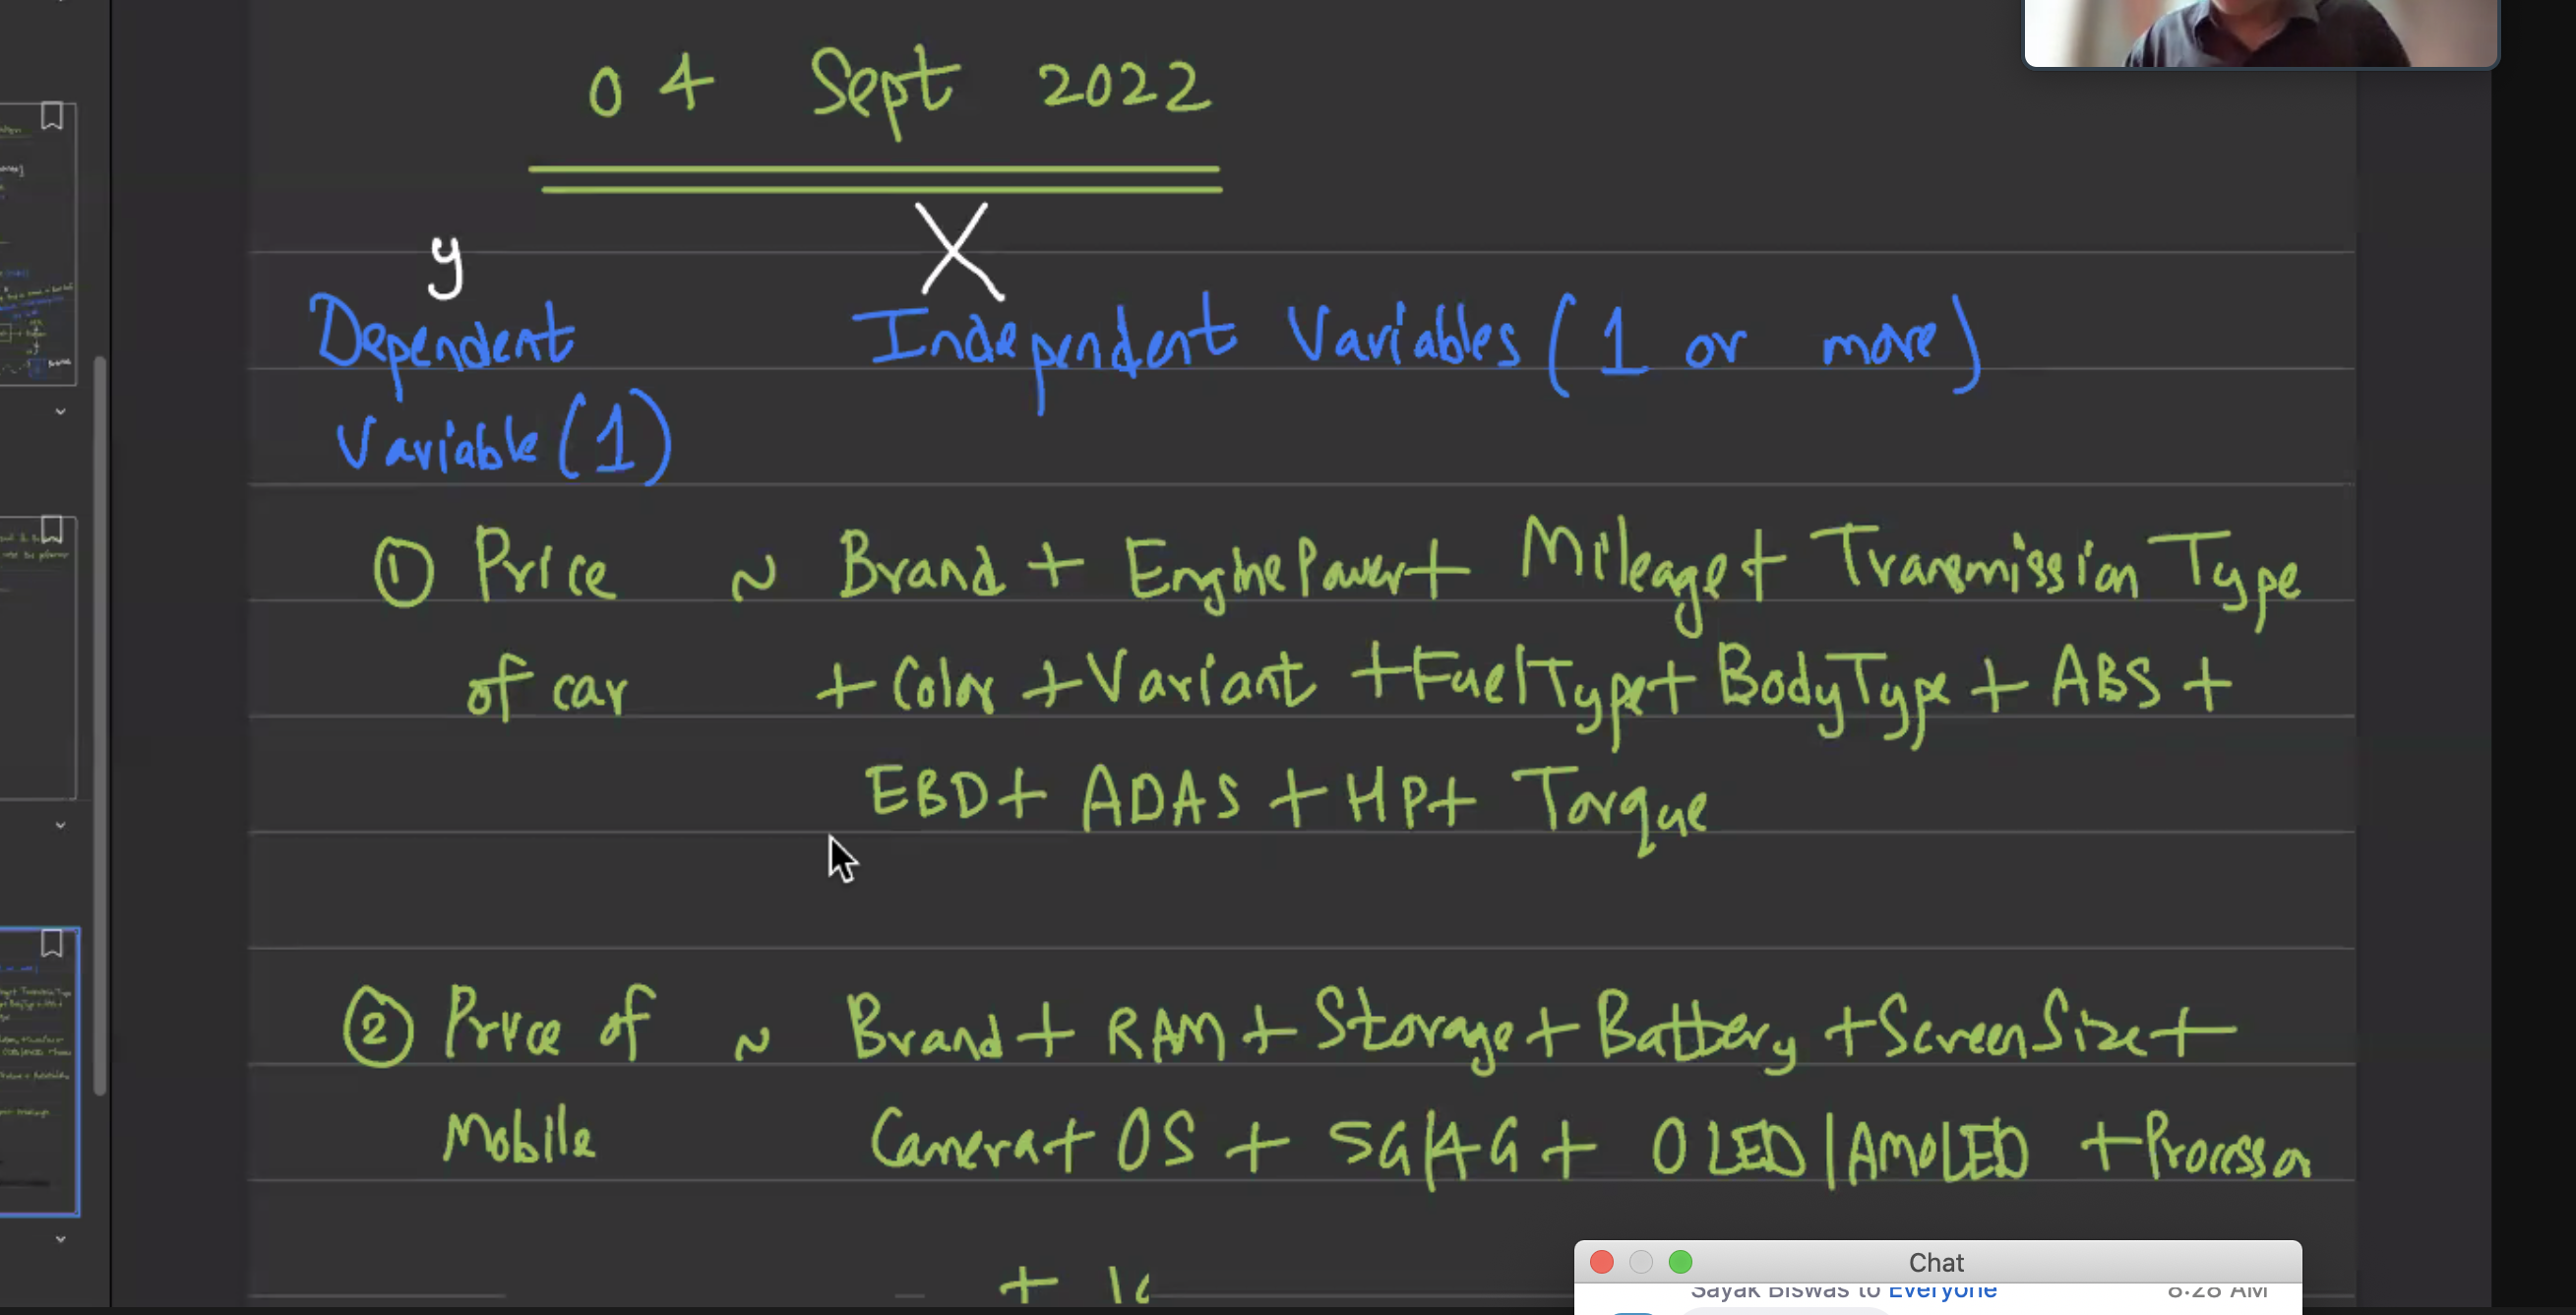 04 Sept 2022
y X
Dependent Independent Variables (1 or more)
Variable (1)
① Price ~ Brand + EnginePower + Mileage + Transmission Type
of car + Color + Variant + FuelType + BodyType + ABS +
EBD + ADAS + HP + Torque
② Price of ~ Brand + RAM + Storage + Battery + ScreenSize +
Mobile Camera + OS + 5G/4G + OLED|AMOLED + Processor
+
Chat
Sayak Biswas to Everyone 8:28 AM